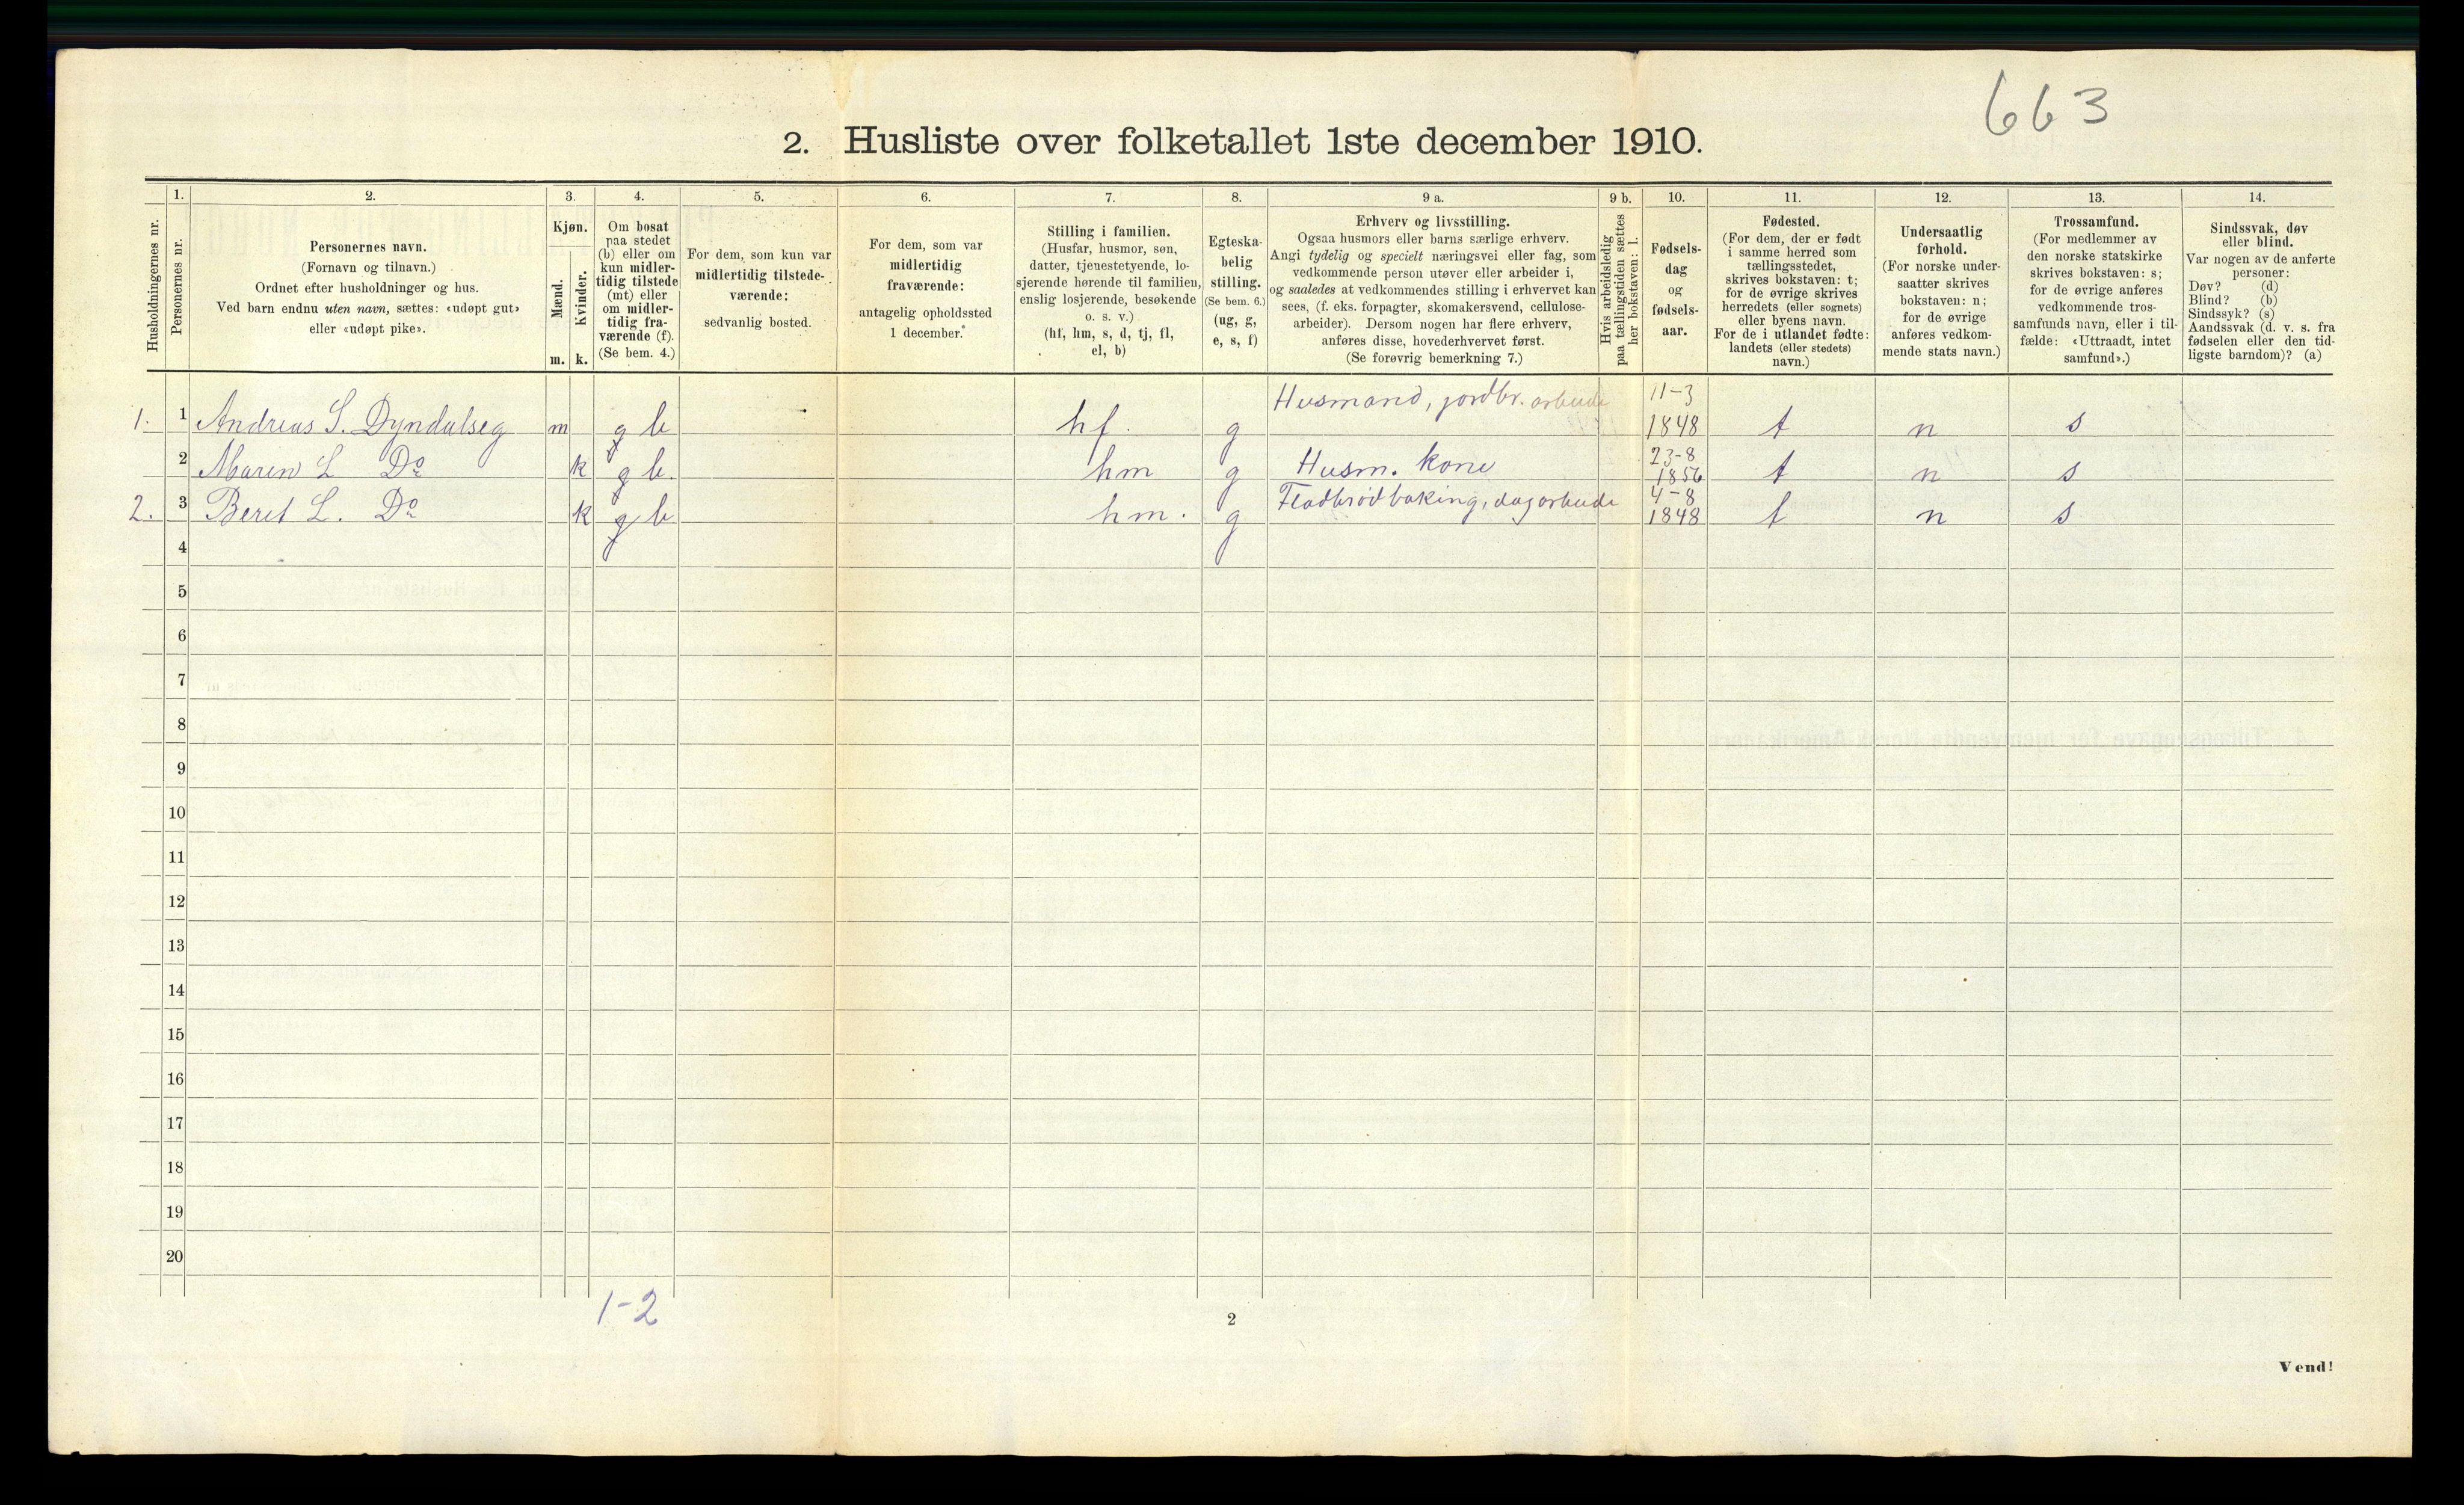 663
2. Husliste over folketallet 1ste december 1910.
Husholdningernes nr.
1.
Personernes nr.
2.
Personernes navn.
(Fornavn og tilnavn.)
Ordnet efter husholdninger og hus.
Ved barn endnu uten navn, sættes: «udøpt gut»
eller «udøpt pike».
3.
Kjøn.
Mænd.
m.
Kvinder.
k.
4.
Om bosat
paa stedet
(b) eller om
kun midler-
tidig tilstede
(mt) eller
om midler-
tidig fra-
værende (f).
(Se bem. 4.)
5.
For dem, som kun var
midlertidig tilstede-
værende:
sedvanlig bosted.
6.
For dem, som var
midlertidig
fraværende:
antagelig opholdssted
1 december.
7.
Stilling i familien.
(Husfar, husmor, søn,
datter, tjenestetyende, lo-
sjerende hørende til familien,
enslig losjerende, besøkende
o. s. v.)
(hf, hm, s, d, tj, fl,
el, b)
8.
Egteska-
belig
stilling.
(Se bem. 6.)
(ug, g,
e, s, f)
9 a.
Erhverv og livsstilling.
Ogsaa husmors eller barns særlige erhverv.
Angi tydelig og specielt næringsvei eller fag, som
vedkommende person utøver eller arbeider i,
og saaledes at vedkommendes stilling i erhvervet kan
sees, (f. eks. forpagter, skomakersvend, cellulose-
arbeider). Dersom nogen har flere erhverv,
anføres disse, hovederhvervet først.
(Se forøvrig bemerkning 7.)
9 b.
Hvis arbeidsledig
paa tællingstiden sættes
her bokstaven: l.
10.
Fødsels-
dag
og
fødsels-
aar.
11.
Fødested.
(For dem, der er født
i samme herred som
tællingsstedet,
skrives bokstaven: t;
for de øvrige skrives
herredets (eller sognets)
eller byens navn.
For de i utlandet fødte:
landets (eller stedets)
navn.)
12.
Undersaatlig
forhold.
(For norske under-
saatter skrives
bokstaven: n;
for de øvrige
anføres vedkom-
mende stats navn.)
13.
Trossamfund.
(For medlemmer av
den norske statskirke
skrives bokstaven: s;
for de øvrige anføres
vedkommende tros-
samfunds navn, eller i til-
fælde: «Uttraadt, intet
samfund».)
14.
Sindssvak, døv
eller blind.
Var nogen av de anførte
personer:
Døv? (d)
Blind? (b)
Sindssyk? (s)
Aandssvak (d. v. s. fra
fødselen eller den tid-
ligste barndom)? (a)
1. 1 Andreas S. Dyndalseg m g b hf. g Husmand, jordbr. arbeide 11-3 1848 t n s
2 Maren L Do k g b. hm g Husm. kone 23-8 1856 t n s
2. 3 Beret L. Do k g b hm. g Fladbrødbaking, dagarbeide 4-8 1848 t n s
4
5
6
7
8
9
10
11
12
13
14
15
16
17
18
19
20
1-2
2
Vend!